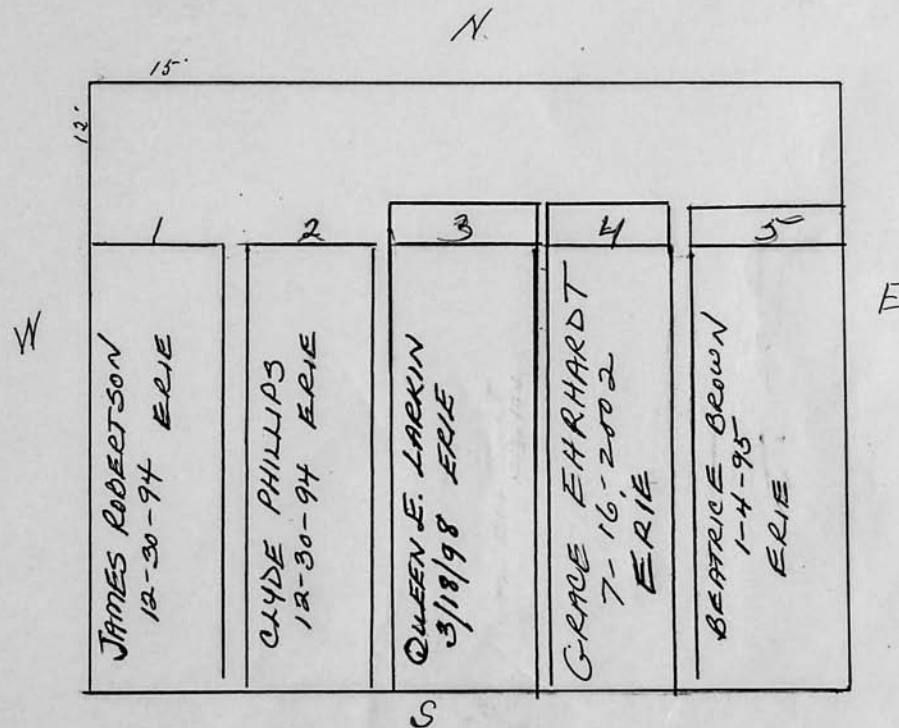 N.
15'
12'
W
E
1
JAMES ROBERTSON
12-30-94 ERIE
2
CLYDE PHILLIPS
12-30-94 ERIE
3
QUEEN E. LARKIN
3/18/98 ERIE
4
GRACE EHRHARDT
7-16-2002
ERIE
5
BEATRICE BROWN
1-4-95
ERIE
S